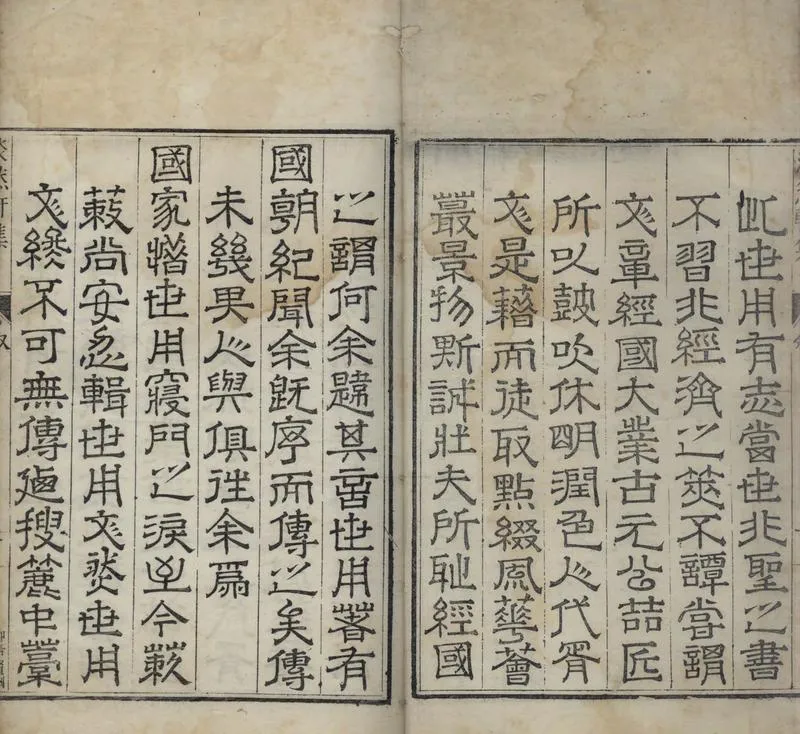 此世用有志當世非聖之書
不習非經濟之筴不譚嘗謂
文章經國大業古元公喆匠
所以鼓吹休明潤色人代胥
文是藉而徒取點綴風華薈
蕞景物斯誠壯夫所恥經國
之謂何余韙其言世用著有
國朝紀聞余既序而傳之矣傳
未幾人與俱往余爲
國家惜世用寢門之淚迄今蔌
蔌尚安忍輯世用文然世用
文終不可無傳迺搜簏中藁
淡然軒集
叙